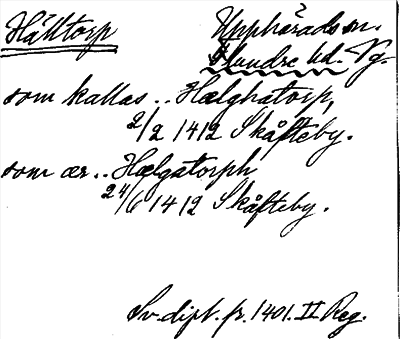 Hälltorp Upphärads sn.
Flundre hd. Vg.
som kallas .. Hælghatorp,
2/2 1412 Skåfteby.
som ær .. Hælgatorph
24/6 1412 Skåfteby.
Sv. dipl. fr. 1401. II Reg.